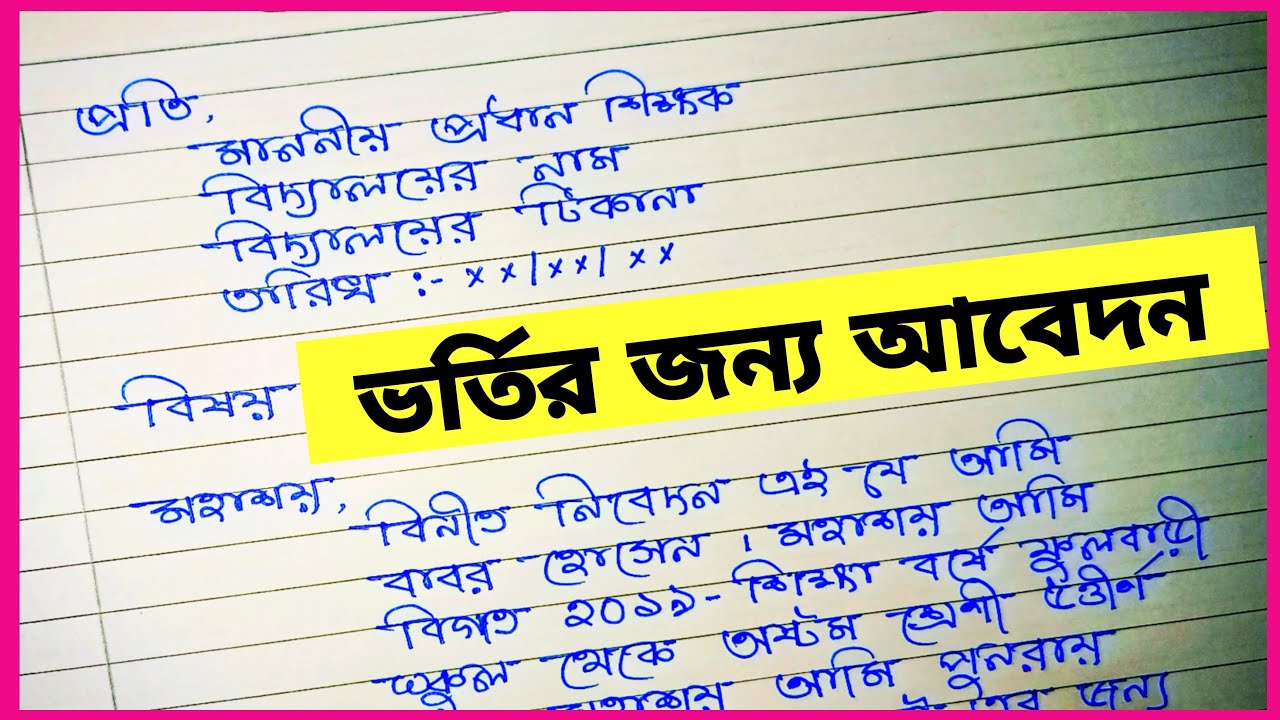 প্রতি,
মাননীয় প্রধান শিক্ষক
বিদ্যালয়ের নাম
বিদ্যালয়ের ঠিকানা
তারিখ :- xx/xx/xx
বিষয় ভর্তির জন্য আবেদন
মহাশয়,
বিনীত নিবেদন এই যে আমি
বাবর হোসেন । মহাশয় আমি
বিগত ২০১৯- শিক্ষা বর্ষে ফুলবাড়ী
স্কুল থেকে অষ্টম শ্রেণী উত্তীর্ণ
মহাশয় আমি পুনরায়
জন্য